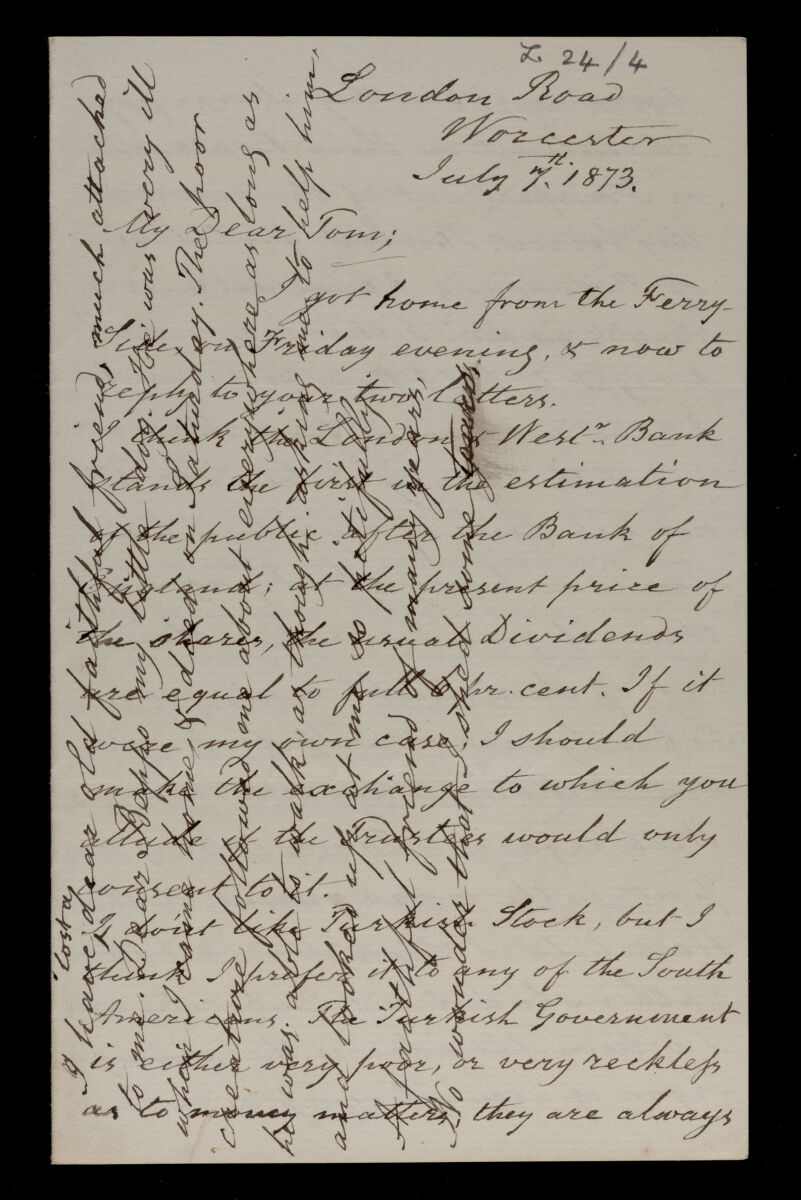 L 24/4
London Road
Worcester
July 7th. 1873.
My Dear Tom;
I got home from the Ferry-
Side, on Friday evening, & now to
reply to your two letters.
I think the London & Westr. Bank
stands the first in the estimation
of the public after the Bank of
England; at the present price of
the shares, the usual Dividends
are equal to full 6 pr. cent. If it
were my own case, I should
make the exchange to which you
allude if the Trustees would only
consent to it.
I don't like Turkish Stock, but I
think I prefer it to any of the South
Americans. The Turkish Government
is either very poor, or very reckless
as to money matters, they are always
I have lost a dear old faithful friend, much attached
to me. Dear Beppo my little dog. He was very ill
when I came home, & died on Saturday. The poor
creature followed me about everywhere as long as
he was able to walk, as though asking me to help him,
and looked up at me so pitifully.
A faithful friend of many years,
No wonder that I shed some tears.